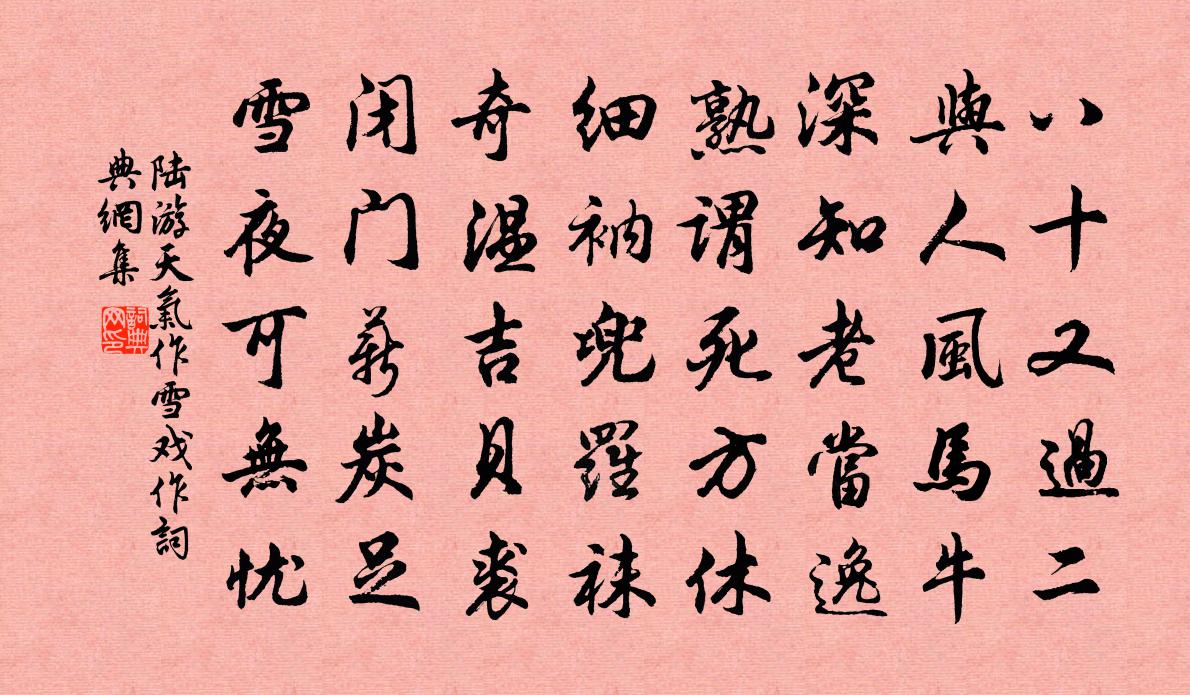 八十又過二
與人風馬牛
深知老當逸
熟謂死方休
細衲兜羅襪
奇温吉貝裘
闭门薪炭足
雪夜可無忧
陆游天氣作雪戏作詞
典網集
詞典
网印